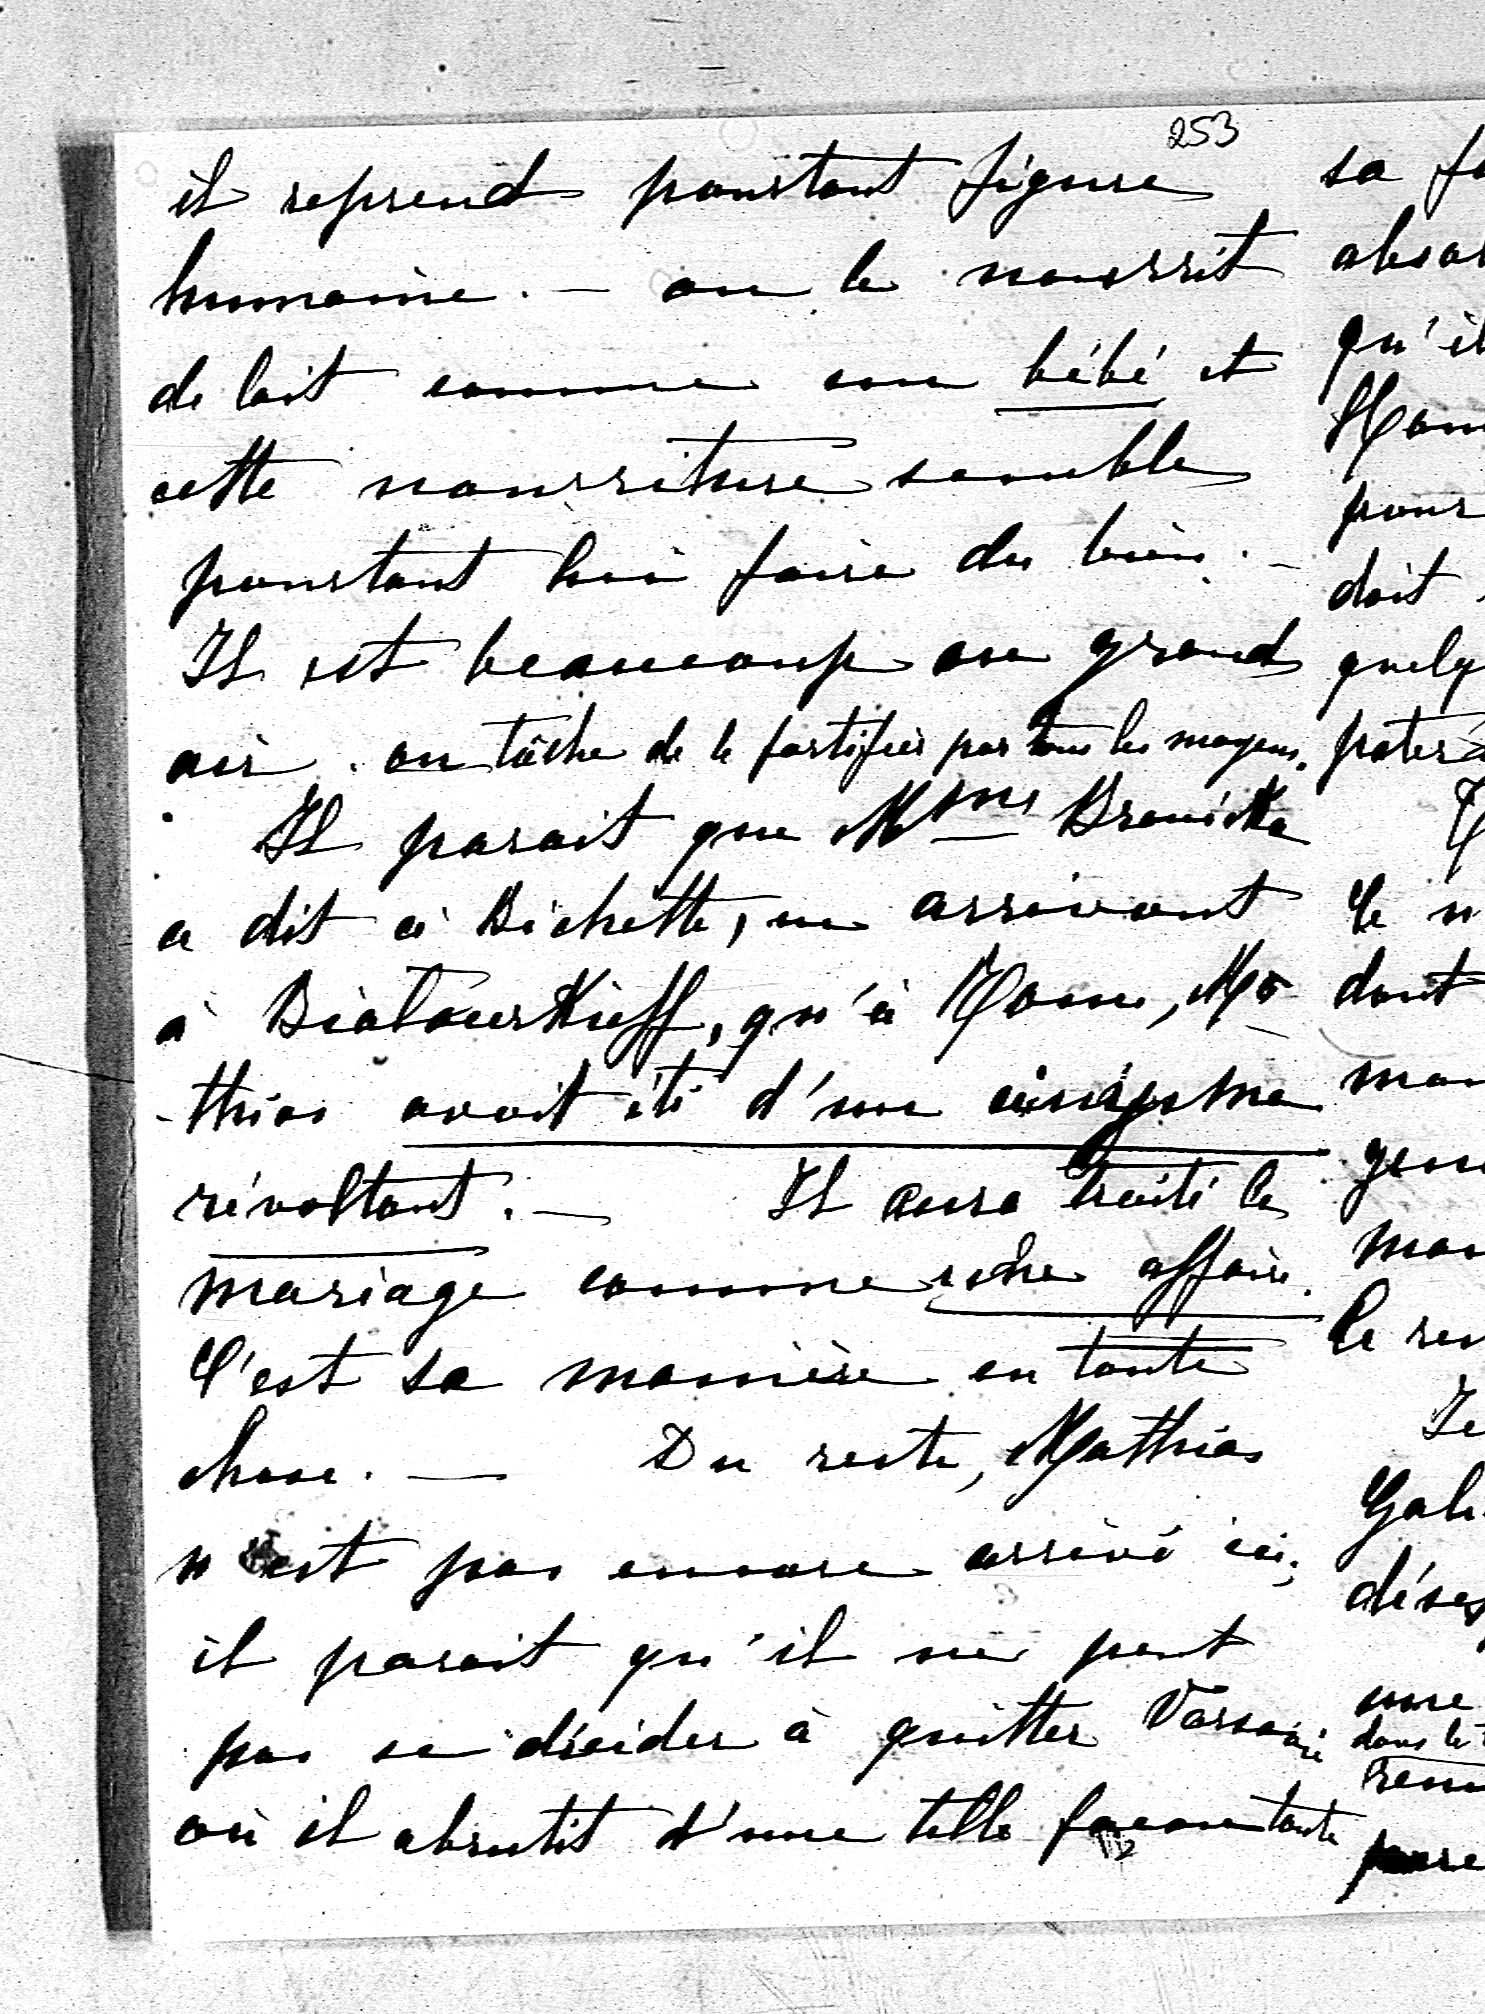 253
il reprend pourtant figure
humaine. — on le nourrit
de lait comme un bébé et
cette nourriture semble
pourtant lui faire du bien. —
Il est beaucoup au grand
air. on tâche de le fortifier par tous les moyens.
Il parait que Mme Branicka
a dit à Bichette, en arrivant
à Biatocerkieff, qu'à Rome, Ma
-thias avait été d'un cinisme
révoltant. — Il aura traité le
mariage comme une affaire.
C'est sa manière en toute
chose. — Du reste, Mathias
n'est pas encore arrivé ici;
il parait qu'il ne peut
pas se décider à quitter Varsovie
où il abrutit d'une telle façon toute
sa
qu'il
pour
doit
Le
dont
Je
une
dans le